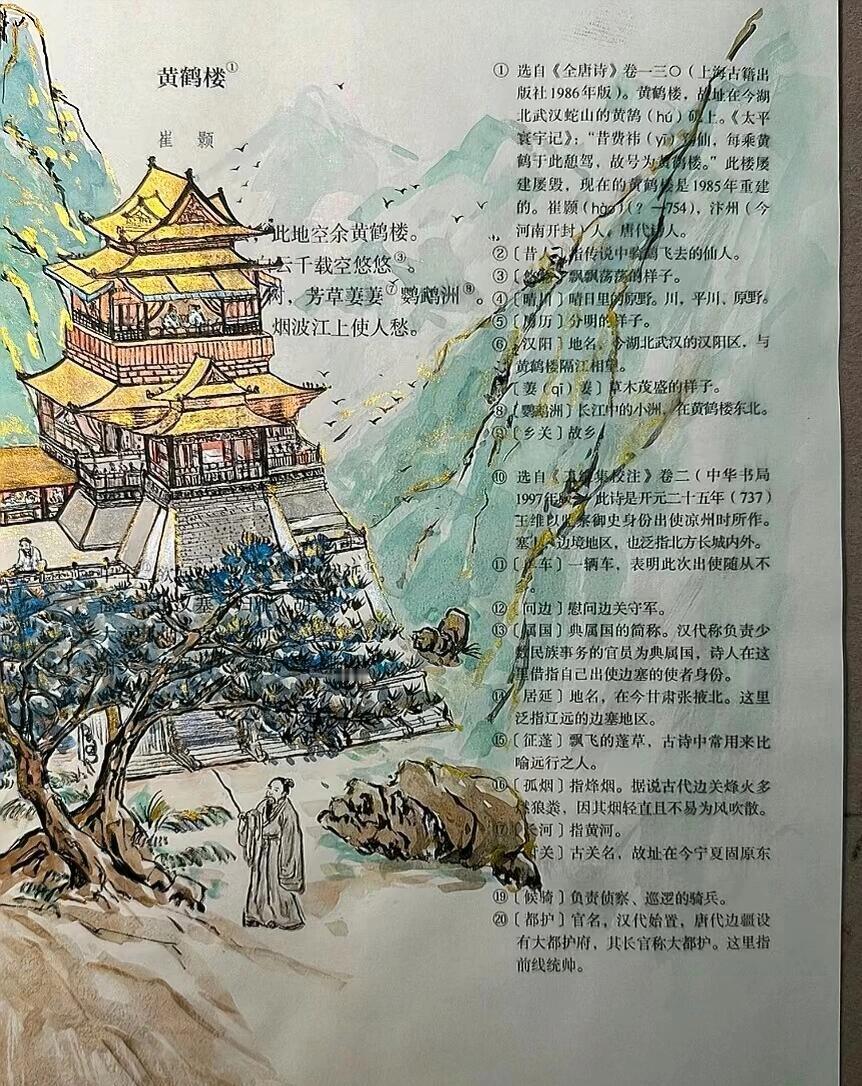 黄鹤楼①
崔 颢
此地空余黄鹤楼。
白云千载空悠悠③。
树，芳草萋萋⑦鹦鹉洲⑧。
烟波江上使人愁。
① 选自《全唐诗》卷一三〇（上海古籍出
版社1986年版）。黄鹤楼，故址在今湖
北武汉蛇山的黄鹄（hú）矶上。《太平
寰宇记》：“昔费祎（yī）登仙，每乘黄
鹤于此憩驾，故号为黄鹤楼。”此楼屡
建屡毁，现在的黄鹤楼是1985年重建
的。崔颢（hào）（？—754），汴州（今
河南开封）人，唐代诗人。
②〔昔人〕指传说中骑鹤飞去的仙人。
③〔悠悠〕飘飘荡荡的样子。
④〔晴川〕晴日里的原野。川，平川、原野。
⑤〔历历〕分明的样子。
⑥〔汉阳〕地名，今湖北武汉的汉阳区，与
黄鹤楼隔江相望。
〔萋（qī）萋〕草木茂盛的样子。
⑧〔鹦鹉洲〕长江中的小洲，在黄鹤楼东北。
⑨〔乡关〕故乡。
⑩ 选自《王维集校注》卷二（中华书局
1997年版）。此诗是开元二十五年（737）
王维以监察御史身份出使凉州时所作。
塞上，边境地区，也泛指北方长城内外。
⑪〔单车〕一辆车，表明此次出使随从不
。
⑫〔问边〕慰问边关守军。
⑬〔属国〕典属国的简称。汉代称负责少
数民族事务的官员为典属国，诗人在这
里借指自己出使边塞的使者身份。
⑭〔居延〕地名，在今甘肃张掖北。这里
泛指辽远的边塞地区。
⑮〔征蓬〕飘飞的蓬草，古诗中常用来比
喻远行之人。
⑯〔孤烟〕指烽烟。据说古代边关烽火多
燃狼粪，因其烟轻直且不易为风吹散。
⑰〔长河〕指黄河。
关〕古关名，故址在今宁夏固原东
⑲〔候骑〕负责侦察、巡逻的骑兵。
⑳〔都护〕官名，汉代始置，唐代边疆设
有大都护府，其长官称大都护。这里指
前线统帅。